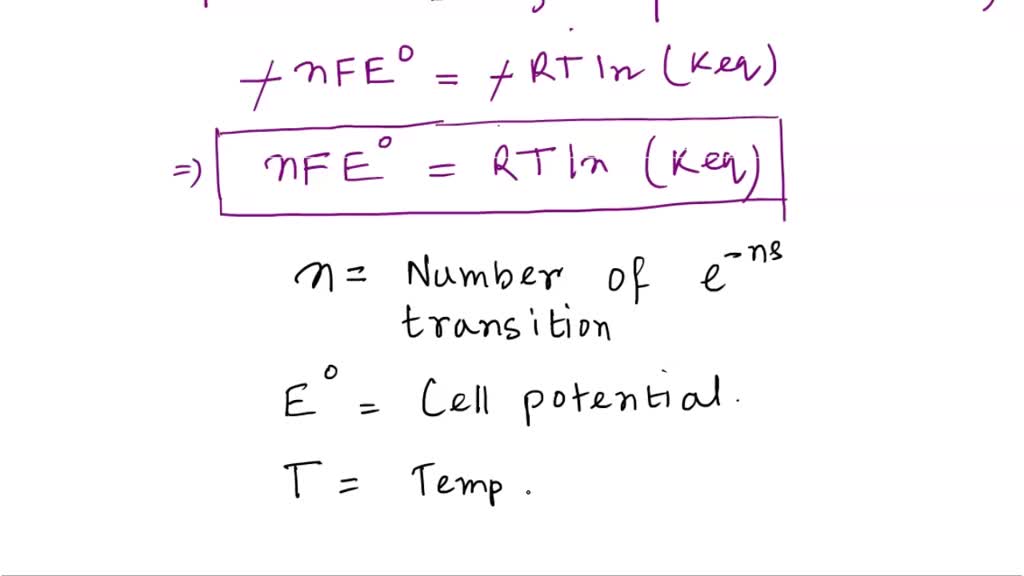 -nFE° = -RT ln (Keq)
=> nFE° = RT ln (Keq)
n = Number of e⁻ⁿˢ
transition
E° = Cell potential.
T = Temp.